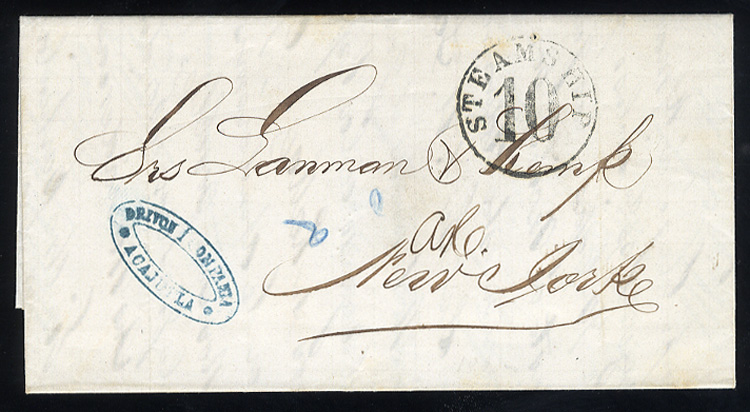 STEAMSHIP
10
Srs Lanman & Kemp
New York
DRIVON Y COMPAÑIA
ACAJUTLA